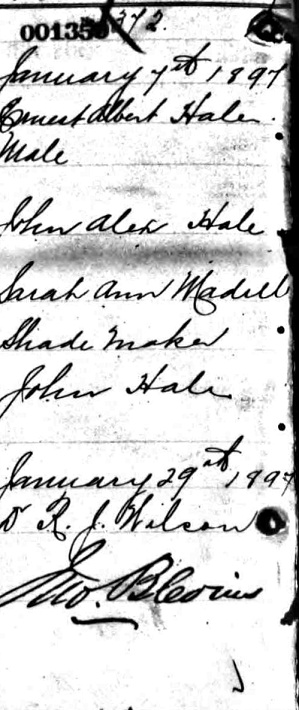 001358 372.
January 7th 1897
Ernest Albert Hale.
Male
John Alex Hale
Sarah Ann Madell
Shade maker
John Hale
January 29th 1897
D R. J. Wilson
Jno. Blevins